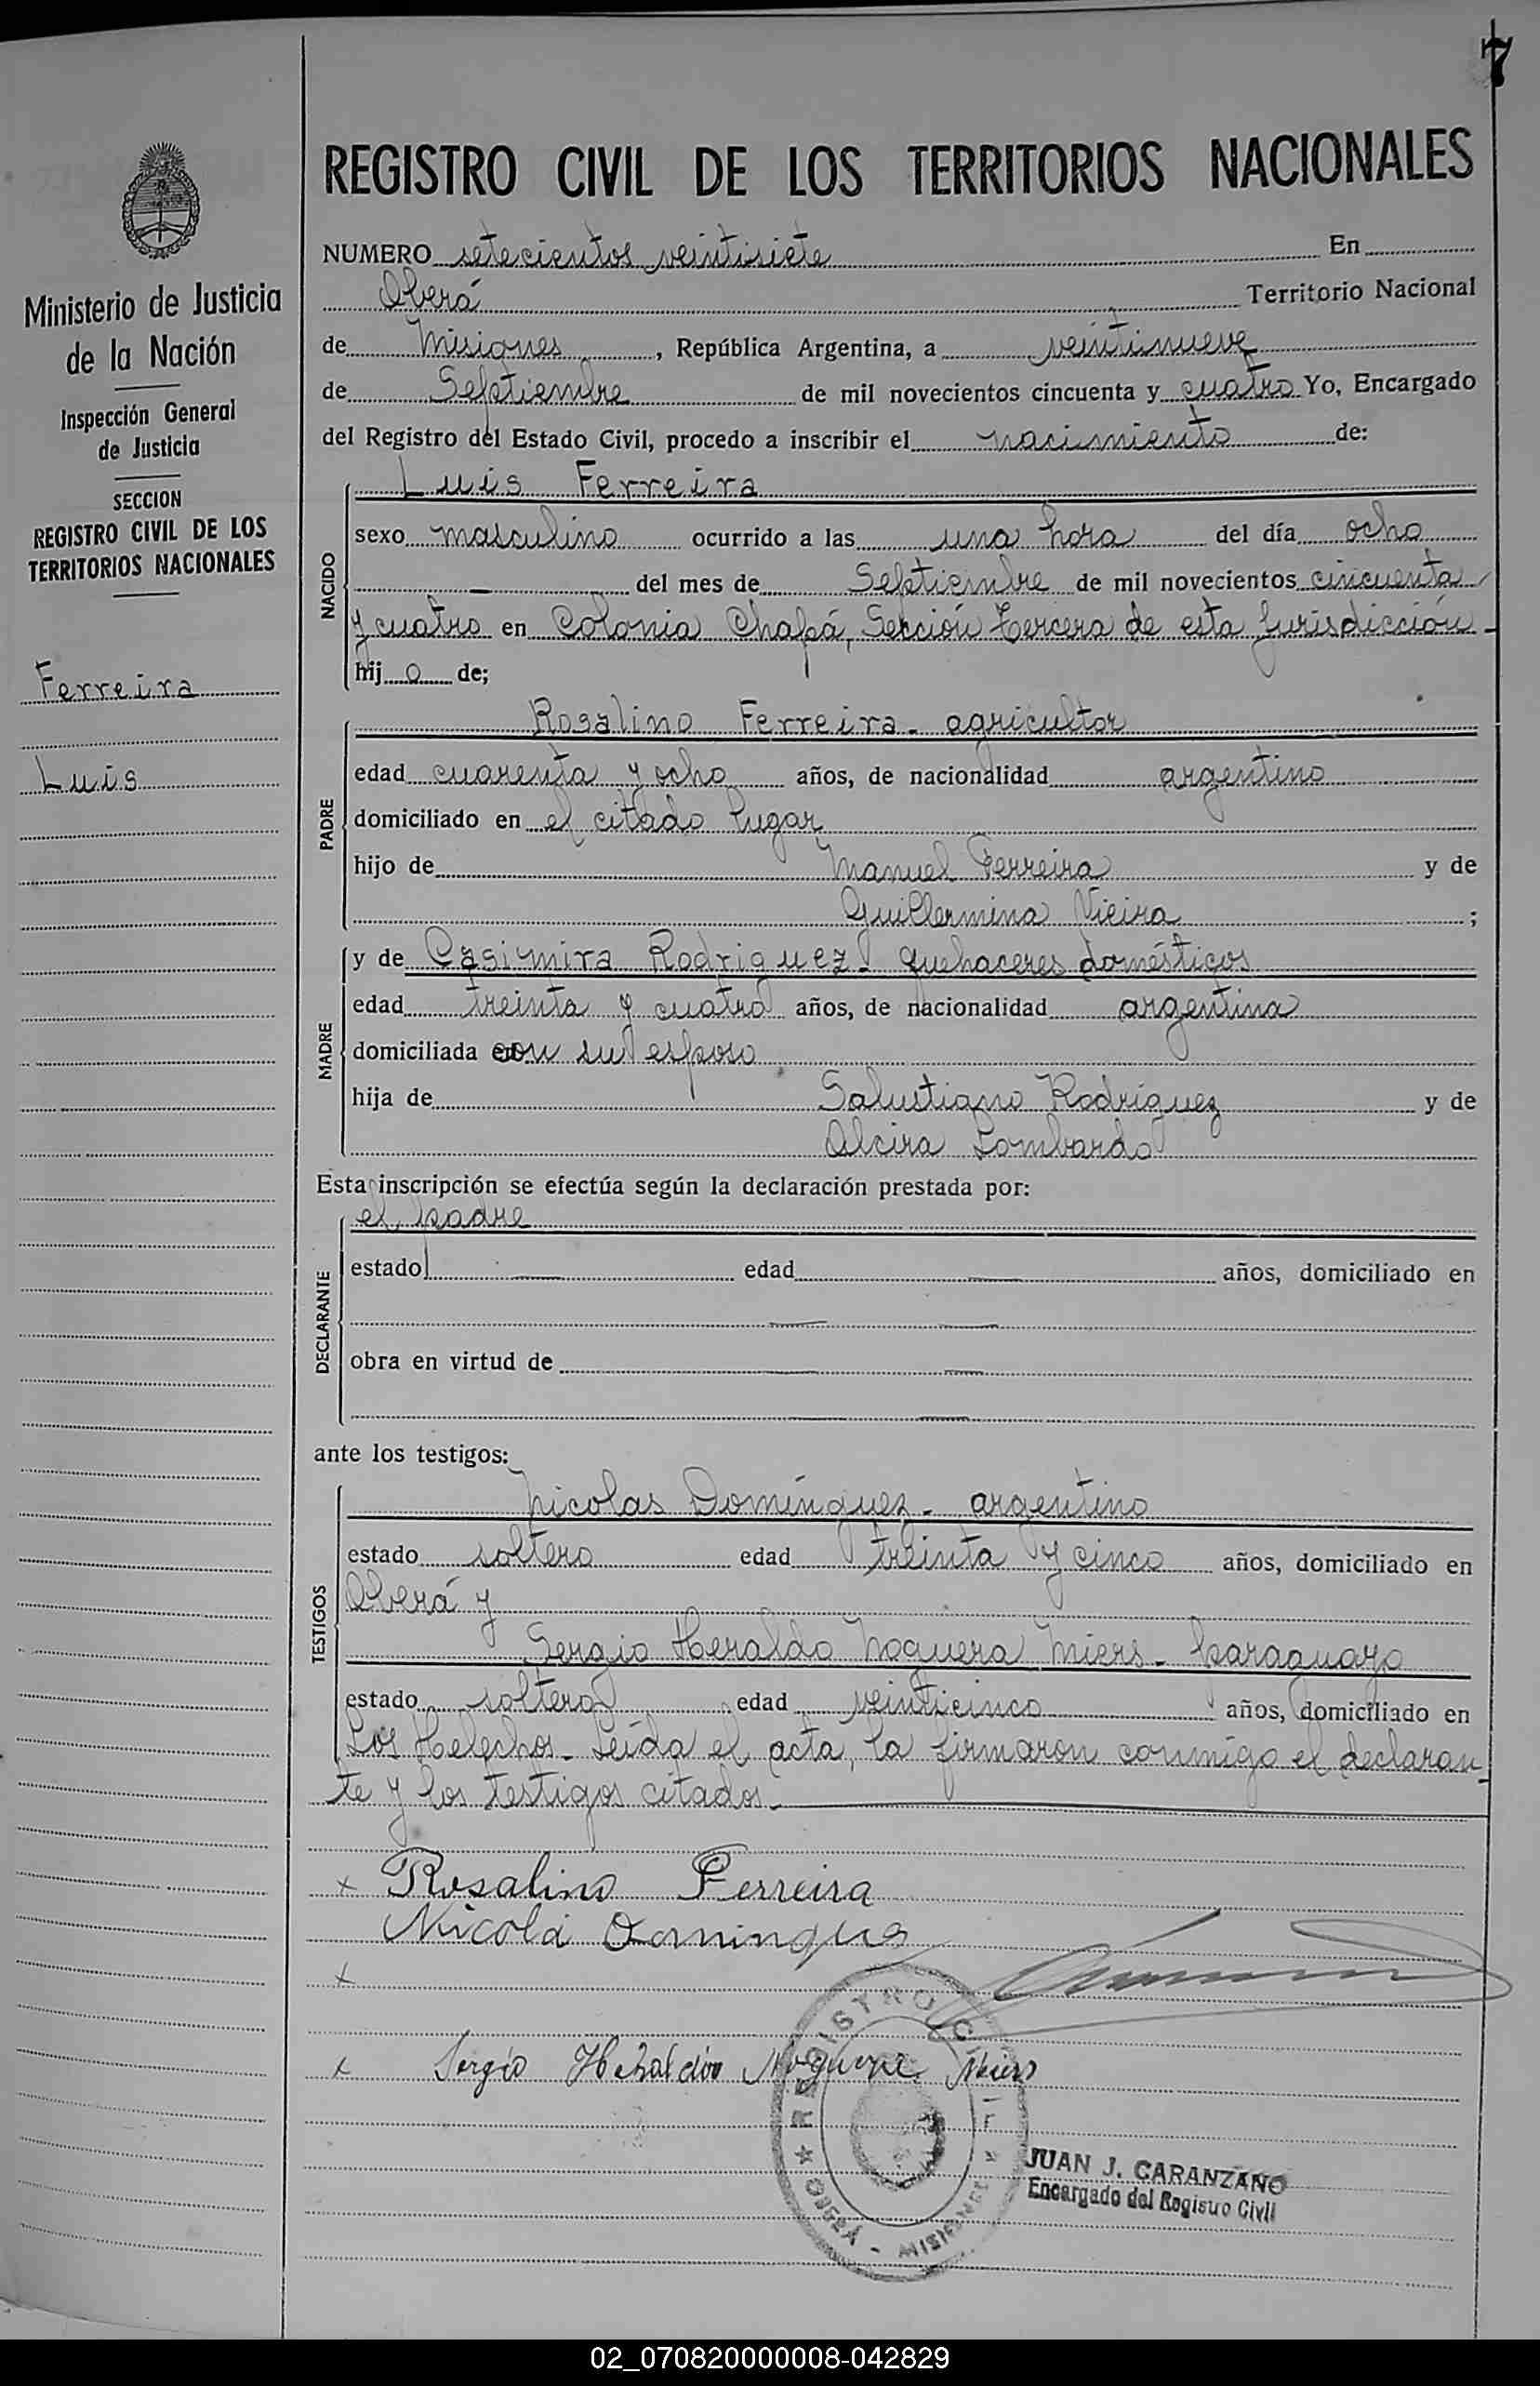 7
REGISTRO CIVIL DE LOS TERRITORIOS NACIONALES
Ministerio de Justicia
de la Nación
Inspección General
de Justicia
SECCION
REGISTRO CIVIL DE LOS
TERRITORIOS NACIONALES
Ferreira
Luis
NUMERO setecientos veintisiete En
Oberá Territorio Nacional
de Misiones, República Argentina, a veintinueve
de Septiembre de mil novecientos cincuenta y cuatro Yo, Encargado
del Registro del Estado Civil, procedo a inscribir el nacimiento de:
NACIDO
Luis Ferreira
sexo masculino ocurrido a las una hora del día ocho
del mes de Septiembre de mil novecientos cincuenta
y cuatro en Colonia Chapá, Sección Tercera de esta Jurisdicción
hij o de;
PADRE
Rosalino Ferreira - agricultor
edad cuarenta y ocho años, de nacionalidad argentino
domiciliado en el citado lugar
hijo de Manuel Ferreira y de
Guillermina Vieira ;
MADRE
y de Casimira Rodriguez - quehaceres domésticos
edad treinta y cuatro años, de nacionalidad argentina
domiciliada con su esposo
hija de Salustiano Rodriguez y de
Alcira Lombardo
Esta inscripción se efectúa según la declaración prestada por:
DECLARANTE
el padre
estado — edad — años, domiciliado en
— —
obra en virtud de — —
— —
ante los testigos:
TESTIGOS
Nicolas Domínguez - argentino
estado soltero edad treinta y cinco años, domiciliado en
Oberá y
Sergio Heraldo Noguera Miers - paraguayo
estado soltero edad veinticinco años, domiciliado en
Los Helechos - Leída el acta, la firmaron conmigo el declaran-
te y los testigos citados.
x Rosalino Ferreira
Nicola Domingues
x
x Sergio Heraldo Noguera Miers
REGISTRO CIVIL
★ OBERÁ - MISIONES ★
JUAN J. CARANZANO
Encargado del Registro Civil
02_070820000008-042829